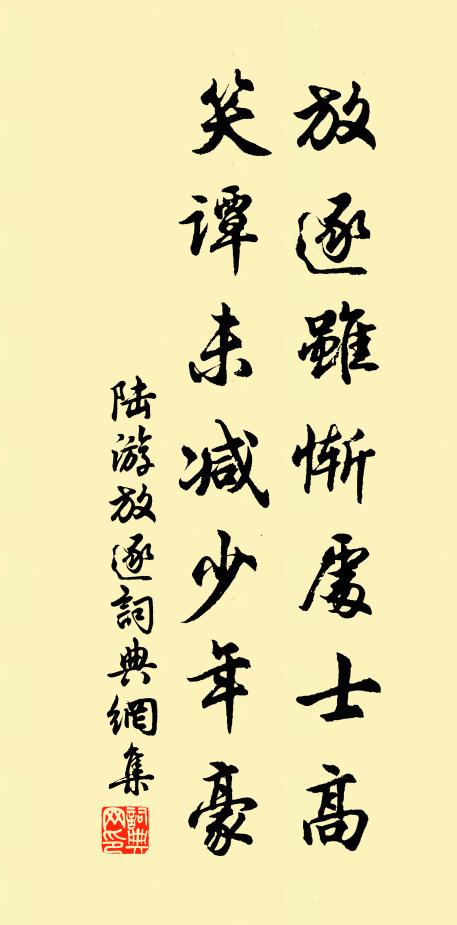 放逐雖慚處士高
笑譚未减少年豪
陆游放逐詞典網集
詞典網印